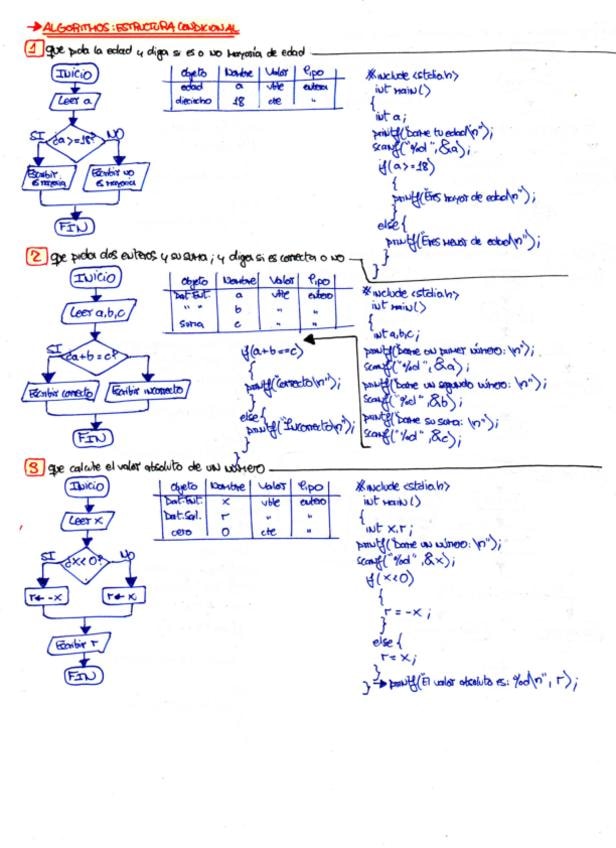 → ALGORITMOS: ESTRUCTURA CONDICIONAL
1 que pida la edad y diga si es o no mayoría de edad
INICIO
Leer a
SI ¿a>=18? NO
Escribir es mayoría
Escribir no es mayoría
FIN
Objeto Nombre Valor Tipo
edad a vble entera
dieciocho 18 cte "
#include <stdio.h>
int main()
{
int a;
printf("Dame tu edad\n");
scanf("%d", &a);
if(a>=18)
{
printf("Eres mayor de edad\n");
}
else{
printf("Eres menor de edad\n");
}
}
2 que pida dos enteros y su suma; y diga si es correcta o no
INICIO
Leer a,b,c
SI ¿a+b=c? NO
Escribir correcto
Escribir incorrecto
FIN
Objeto Nombre Valor Tipo
Dat. Ent. a vble entero
" " b " "
Suma c " "
#include <stdio.h>
int main()
{
int a,b,c;
printf("Dame un primer número: \n");
scanf("%d", &a);
printf("Dame un segundo número: \n");
scanf("%d", &b);
printf("Dame su suma: \n");
scanf("%d", &c);
if(a+b==c)
{
printf("Correcto\n");
}
else{
printf("Incorrecto\n");
}
}
3 que calcule el valor absoluto de un NÚMERO
INICIO
Leer x
SI ¿x<0? NO
r← -x
r← x
Escribir r
FIN
Objeto Nombre Valor Tipo
Dat. Ent. x vble entero
Dat. Sal. r " "
cero 0 cte "
#include <stdio.h>
int main()
{
int x,r;
printf("Dame un número: \n");
scanf("%d", &x);
if(x<0)
{
r = -x;
}
else{
r = x;
}
} → printf("El valor absoluto es: %d\n", r);